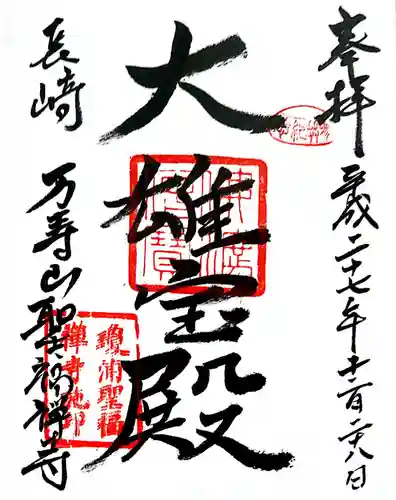 奉拝
平成二十七年十二月二十八日
大雄宝殿
長崎
万寿山聖福禅寺
瓊浦聖福
禅寺地印